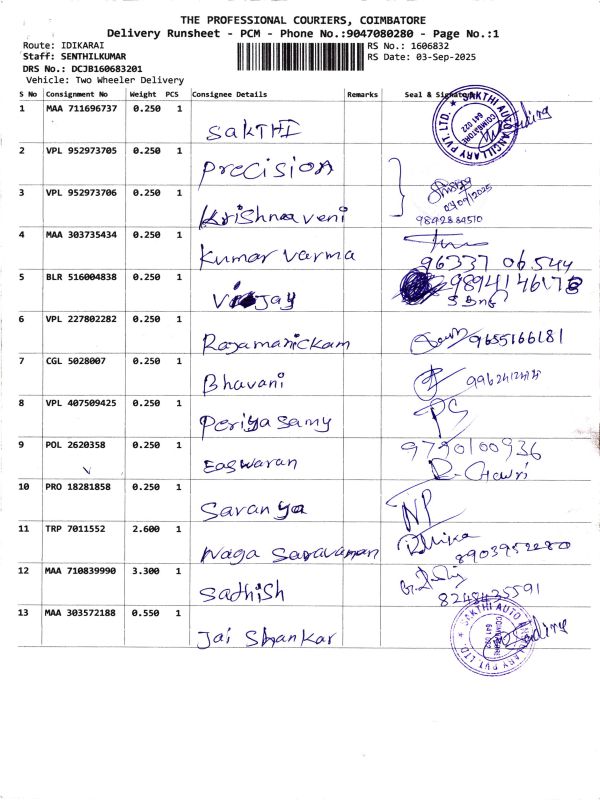 THE PROFESSIONAL COURIERS, COIMBATORE
Delivery Runsheet - PCM - Phone No.:9047080280 - Page No.:1
Route: IDIKARAI
RS No.: 1606832
Staff: SENTHILKUMAR
RS Date: 03-Sep-2025
DRS No.: DCJB160683201
Vehicle: Two Wheeler Delivery
S No Consignment No Weight PCS Consignee Details Remarks Seal & Signature
1 MAA 711696737 0.250 1 SAKTHI
SAKTHI AUTO ANCILLARY PVT. LTD. COIMBATORE 641 022
2 VPL 952973705 0.250 1 Precision
3 VPL 952973706 0.250 1 Krishnaveni
03/09/2025
9892884510
4 MAA 303735434 0.250 1 Kumar varma
96337 06544
5 BLR 516004838 0.250 1 Vijay
6 VPL 227802282 0.250 1 Rajamanickam 9655166181
7 CGL 5028007 0.250 1 Bhavani
8 VPL 407509425 0.250 1 Periyasamy PS
9 POL 2620358 0.250 1 Easwaran 9790100936
R. Gowri
10 PRO 18281858 0.250 1 Saranya NP
11 TRP 7011552 2.600 1 Naga Saravanan
8903952280
12 MAA 710839990 3.300 1 Sathish
8248435591
13 MAA 303572188 0.550 1 Jai Shankar
SAKTHI AUTO ANCILLARY PVT. LTD. COIMBATORE 641 022